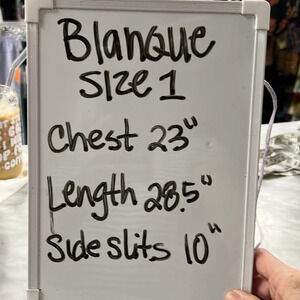 Blanque
Size 1
Chest 23"
Length 28.5"
Side slits 10"